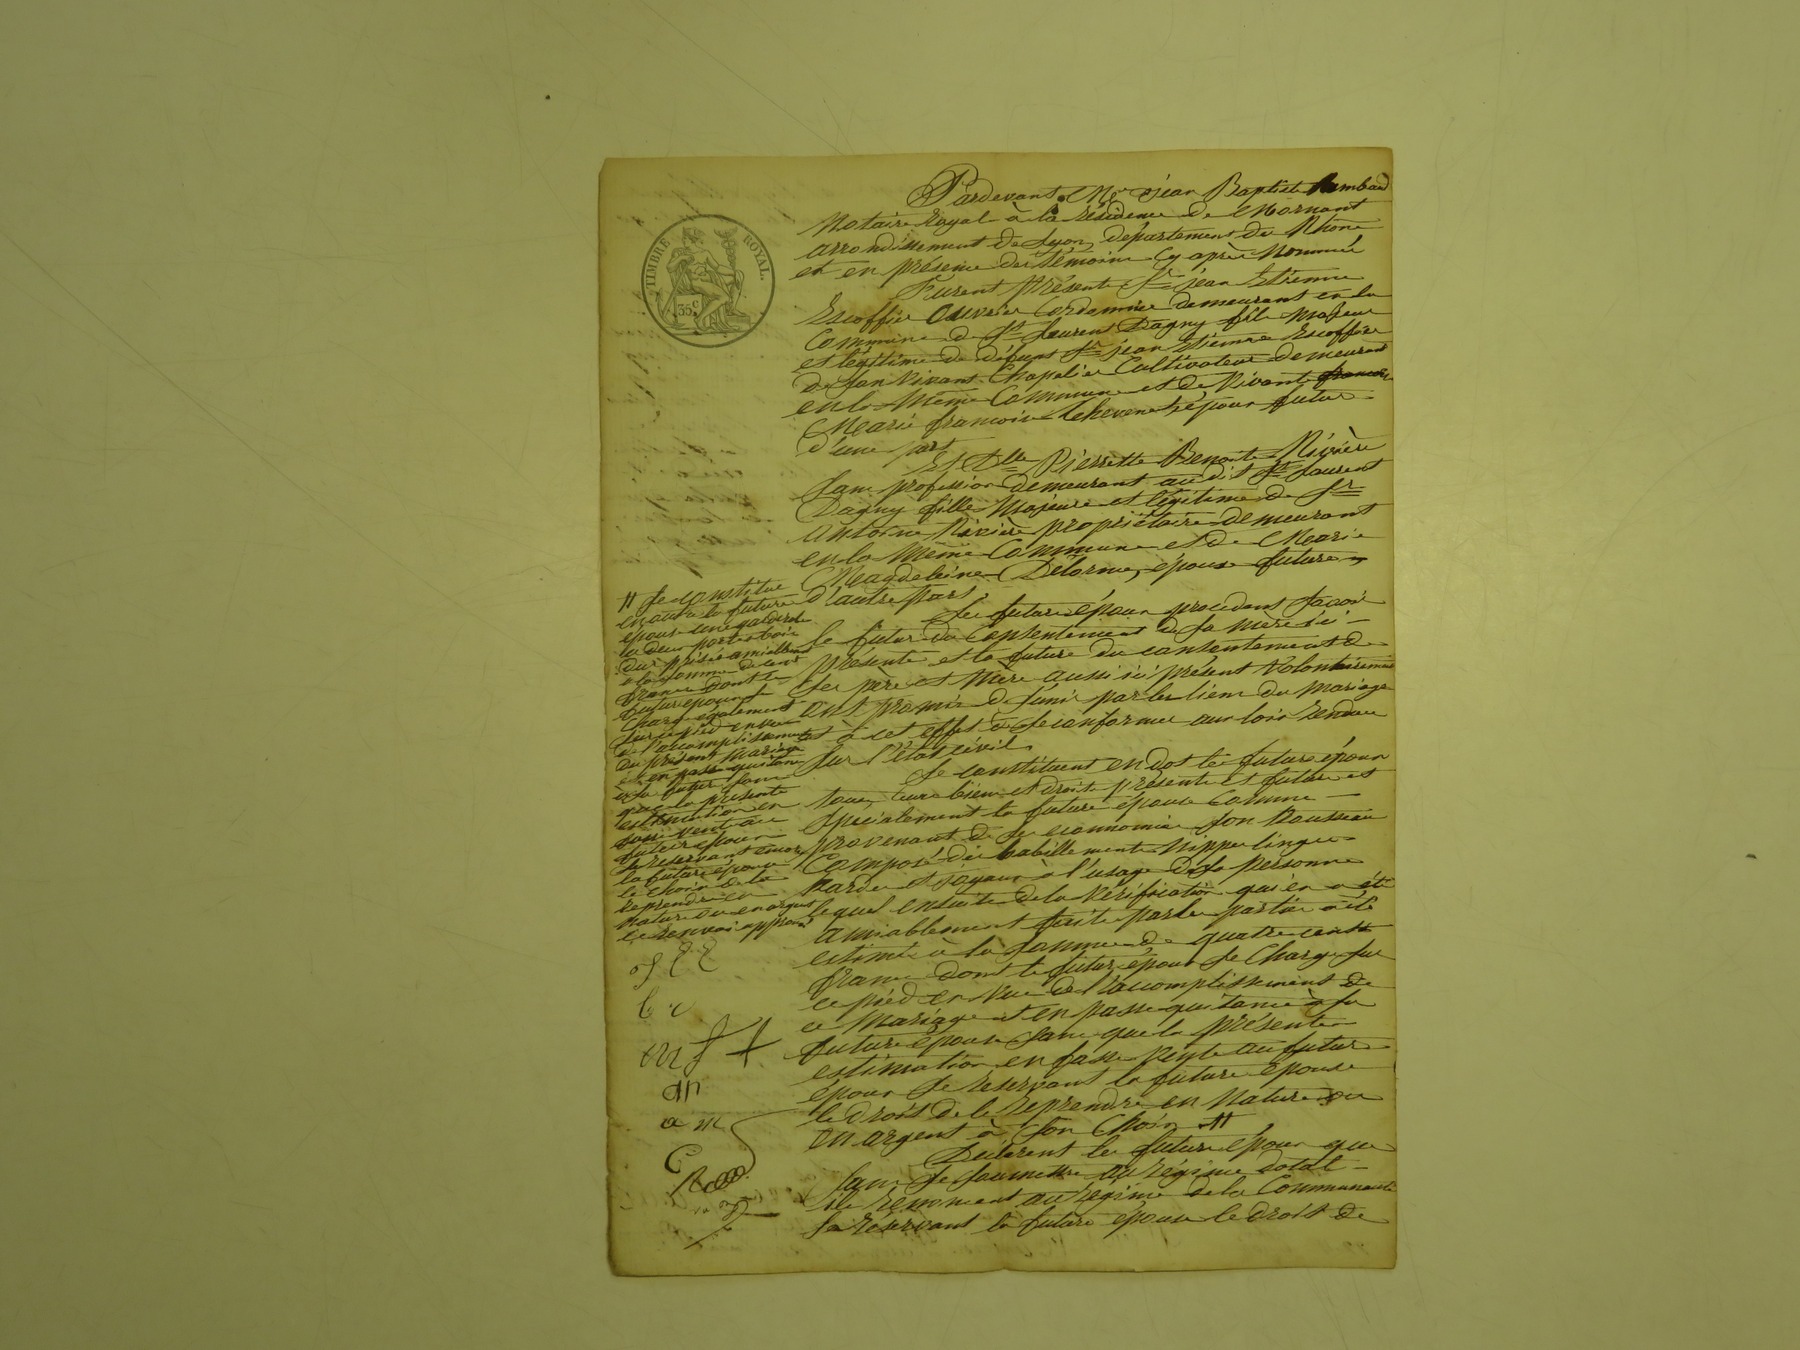 TIMBRE ROYAL.
35 c
Pardevant Me jean Baptiste Rambaud
Notaire royal à la résidence de Mornant
arrondissement de Lyon, département du Rhône
et en présence des témoins cy après nommés
Furent Présents Sr jean Etienne
Escoffier Ouvrier Cordonnier demeurant en la
Commune de St Laurent Dagny fils majeur
et légitime de défunt Sr jean Etienne Escoffier
de son vivant Chapelier Cultivateur demeurant
en la même Commune et de vivante
Marie françoise Thevenet époux futur
d'une part
Et Dlle Pierrette Benoite Rivière
sans profession demeurant au dit St Laurent
Dagny fille majeure et légitime de Sr
antoine Rivière propriétaire demeurant
en la même Commune et de Marie
Magdeleine Delorme, épouse future
d'autre part.
Les futurs époux procedent savoir
le futur du Consentement de sa mère ici
présente et la future du consentement de
ses père et mère aussi ici présent volontairement
ont promis de s'unir par les liens du mariage
et à cet effet de se conformer aux lois rendues
sur l'état civil.
Se constituent en dot les futurs époux
tous leurs biens et droits présents et futurs et
specialement la future épouse Comme
provenant de ses economies son trousseau
Composé des habillements nippes linges
hardes et joyaux à l'usage de sa personne
lequel ensuite de la vérification qui en a été
amiablement faite par les parties a été
estimé à la somme de quatre cents
francs dont le futur époux se Charge sur
ce pied en vue de l'accomplissement de
ce mariage et en passe quitance à sa
future épouse sans que la présente
estimation en fasse vente au futur
époux se reservant la future épouse
le droit de le reprendre en nature ou
en argent à son Choix #
Déclarent les futurs époux que
sans se soumettre au régime dotal
ils renoncent au régime de la Communauté
se réservant la future épouse le droit de
# Se constitue
en outre la future
épouse une garderobe
à deux portes bois
dur prisée amiablement
à la somme de cent
francs dont le
futur époux se
Charge également
sur ce pied en vue
de l'accomplissement
du présent mariage
et en passe quitance
à sa future sans
que la présente
estimation en
fasse vente au
futur époux
se reservant encore
la future épouse
le choix de la
reprendre en
nature ou en argent
ce renvoi approuvé
J E E
b r
m f t
a m